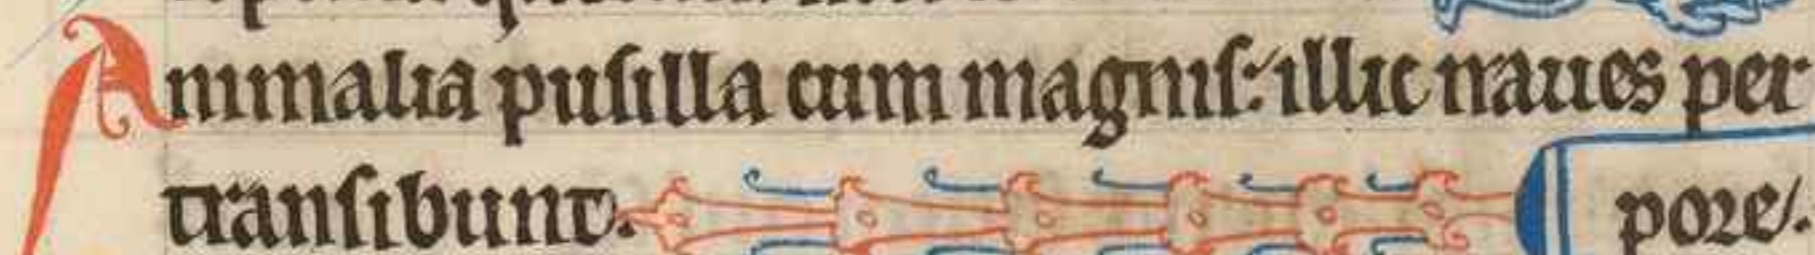 Animalia pusilla cum magnis: illic naues per
transibunt.
pore/.